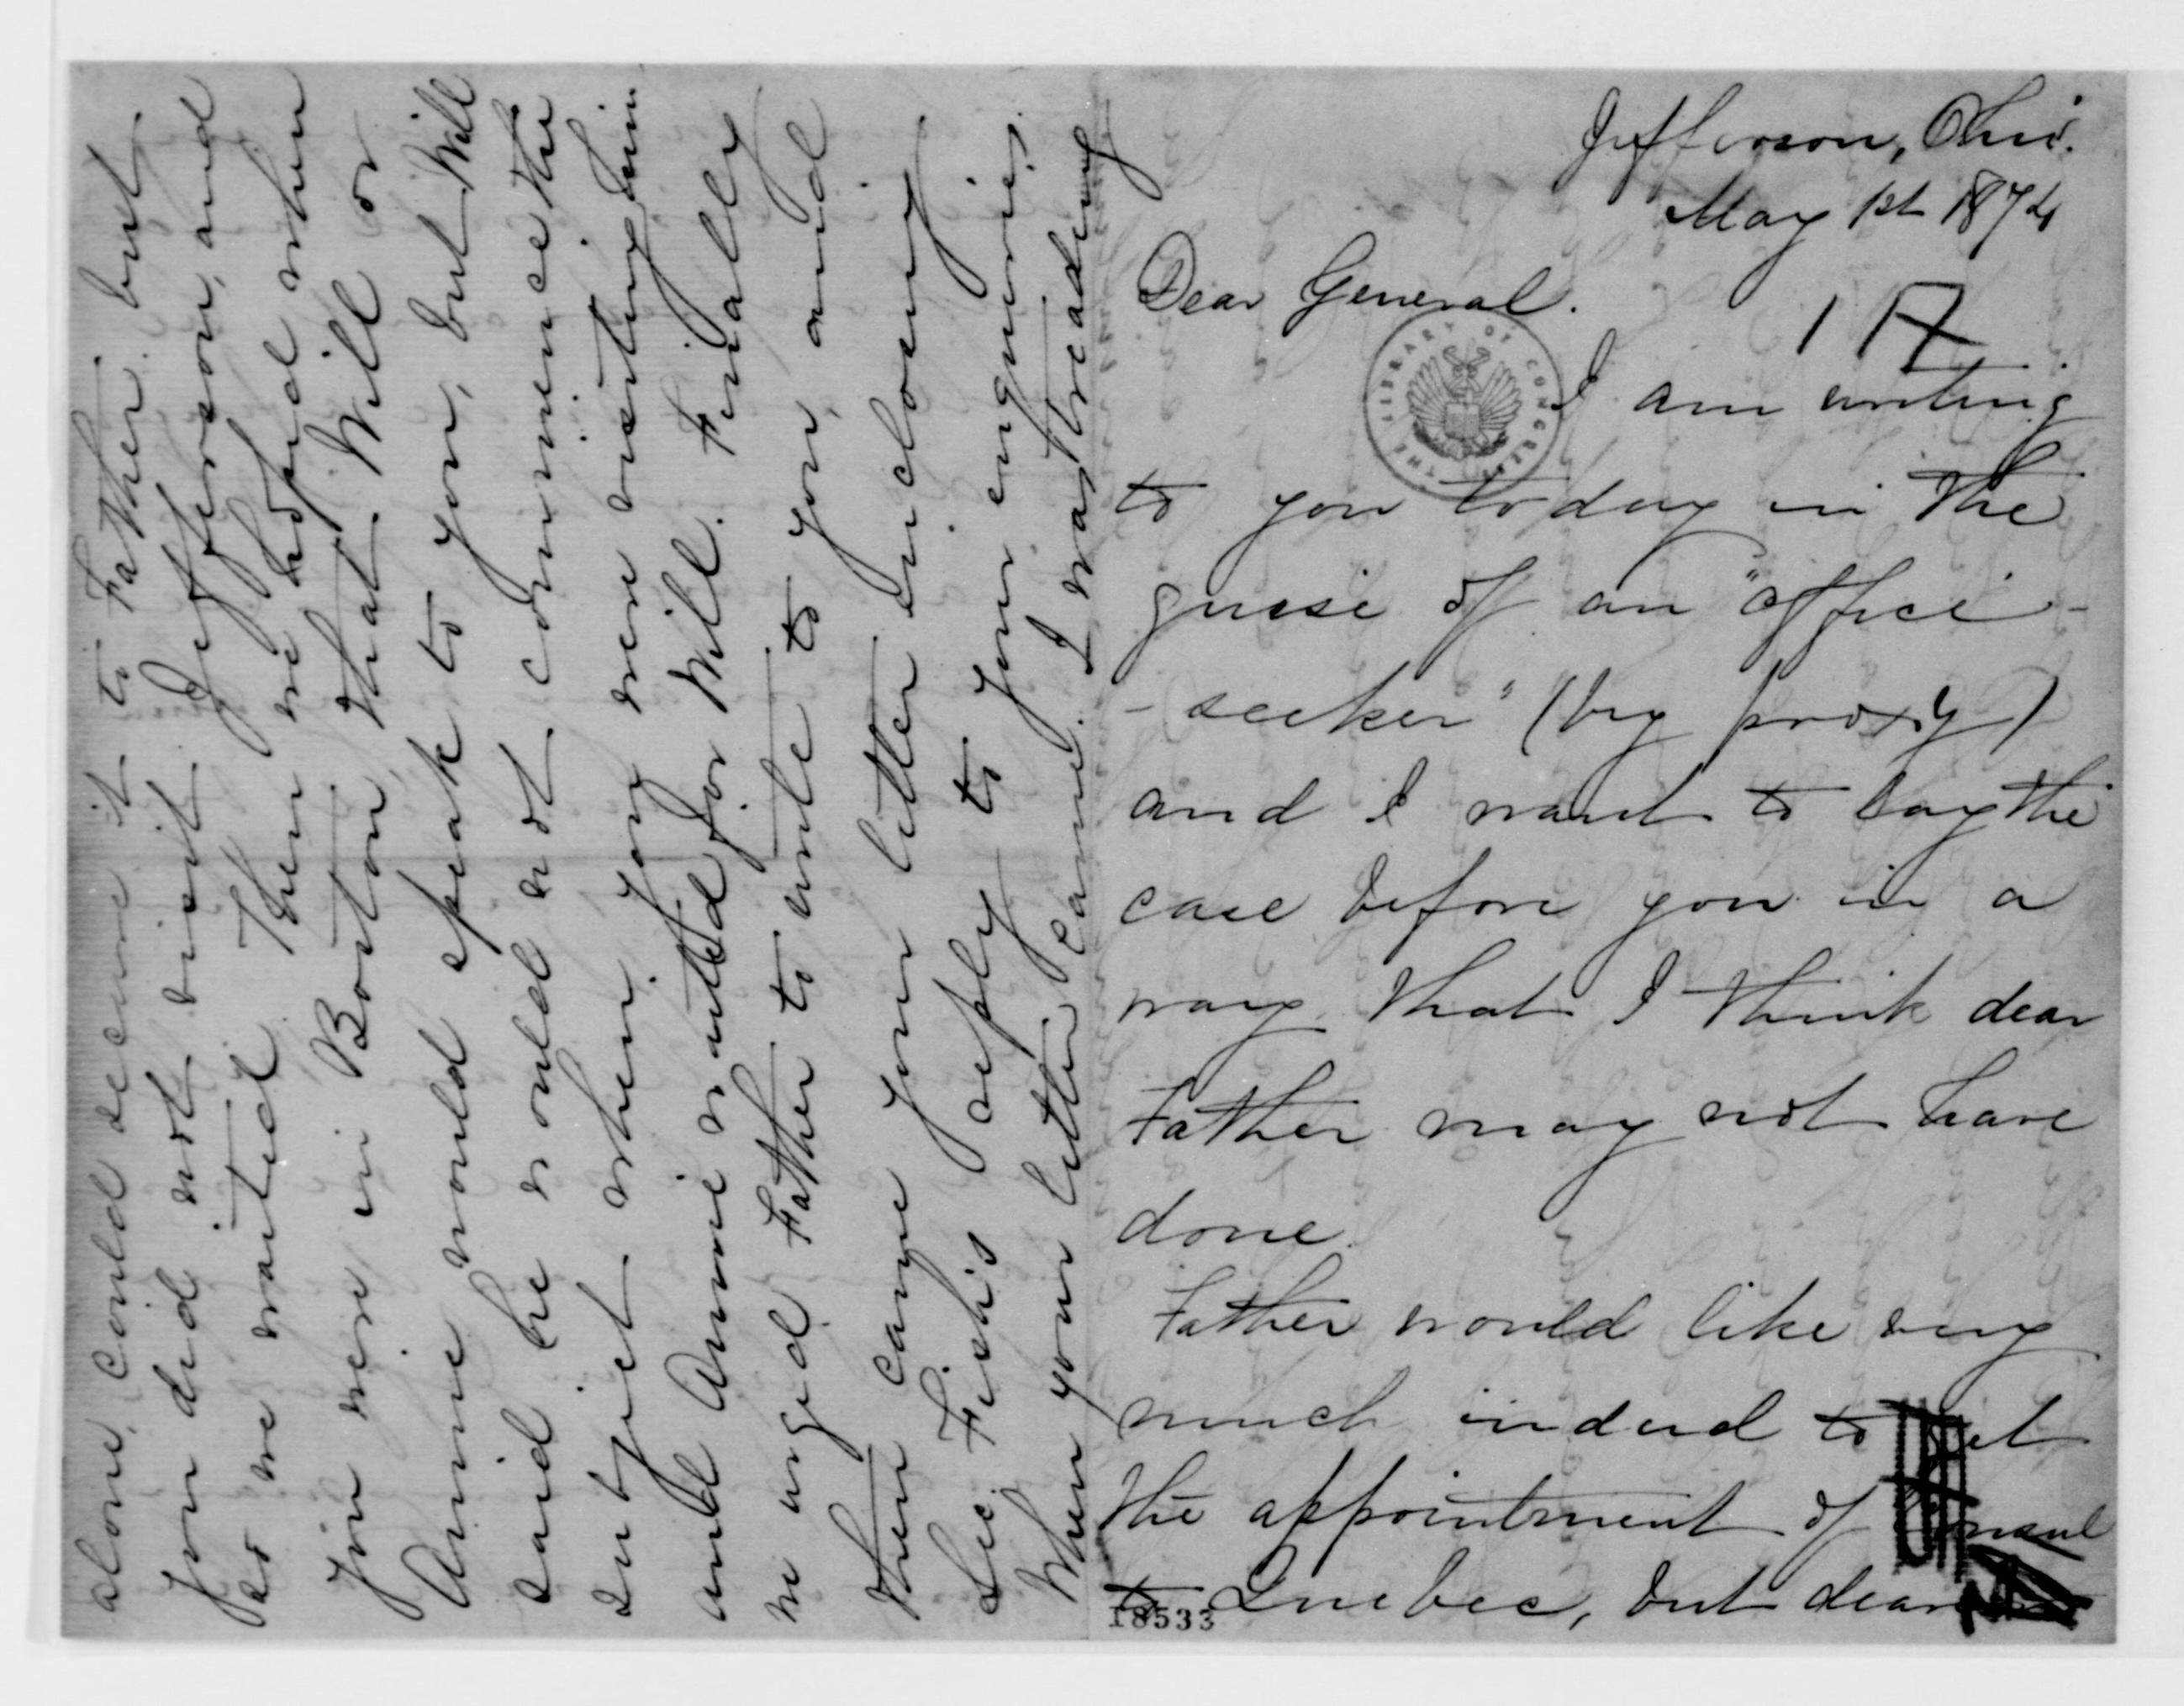 Jefferson, Ohio.
May 1st 1874
1 A
Dear General.
THE LIBRARY OF CONGRESS
I am writing
to you today in the
guise of an "office-
-seeker" (by proxy)
and I want to lay the
case before you in a
way that I think dear
Father may not have
done.
Father would like very
much indeed to get
the appointment of Consul
to Quebec, but dear
18533
alone could secure it to Father but
you did not visit Jefferson, and
so we waited. Then we hoped when
you were in Boston, that Will or
Annie would speak to you, but Will
said he would not commence the
subject when you were visiting him
and Annie waited for Will. Finally
we urged Father to write to you, and
then came your letter enclosing
Sec. Fish's reply to your enquiries.
When your letter came, I was treading